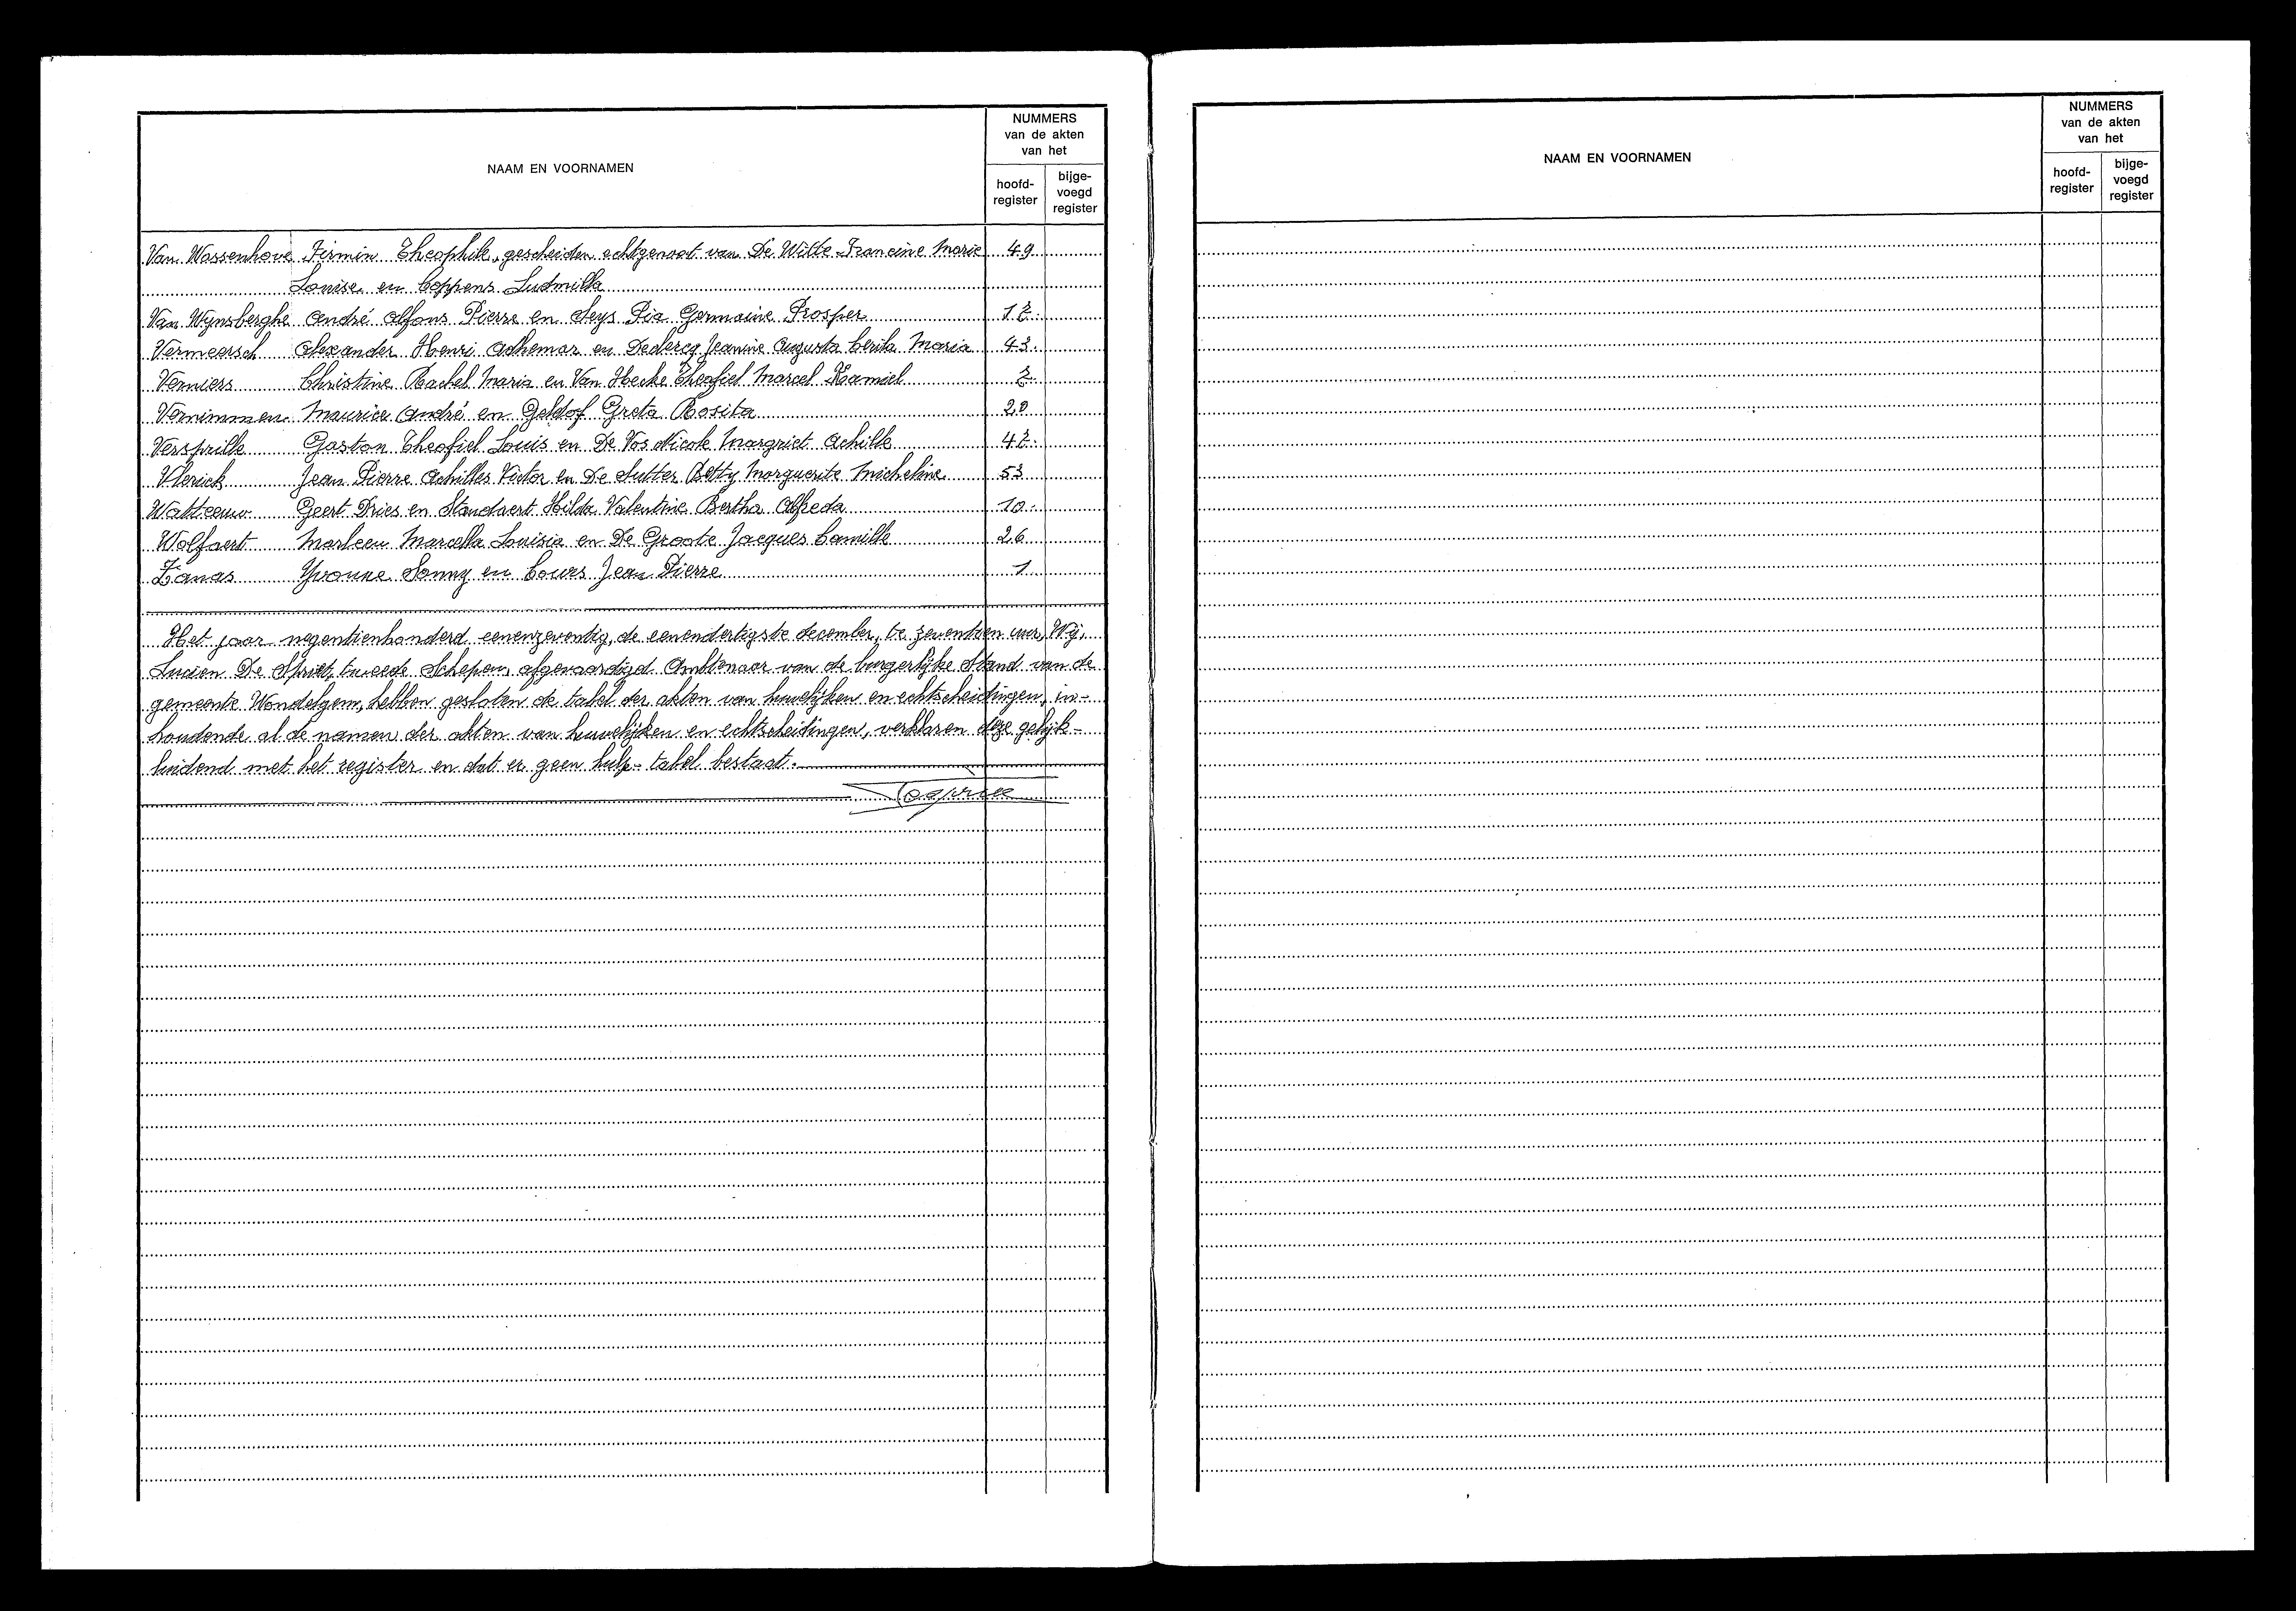 NAAM EN VOORNAMEN
NUMMERS
van de akten
van het
hoofd-
register
bijge-
voegd
register
Van Wassenhove Firmin Theophile, gescheiden echtgenoot van De Witte Francine Marie 49
Louise en Coppens Ludmilla
Van Wynsberghe André Alfons Pierre en Seys Pia Germaine Prosper 12.
Vermeersch Alexander Henri Adhemar en Declercq Jeanine Augusta Cerila Maria 43.
Verniers Christine Rachel Maria en Van Hecke Theofiel Marcel Kamiel 2
Vernimmen Maurice André en Geldof Greta Rosita 20
Versprille Gaston Theofiel Louis en De Vos Nicole Margriet Achille 42.
Vlerick Jean Pierre Achilles Victor en De Sutter Betty Marguerite Micheline 53
Watteeuw Geert Dries en Standaert Hilda Valentine Bertha Alfreda 10.
Wolfaert Marleen Marcella Louisia en De Groote Jacques Camille 26
Zanas Yvonne Sonny en Cours Jean Pierre 1
Het jaar negentienhonderd eenenzeventig, de eenendertigste december, te zeventien uur, Wij,
Lucien De Spriet, tweede Schepen, afgevaardigd Ambtenaar van de burgerlijke Stand van de
gemeente Wondelgem, hebben gesloten de tafel der akten van huwelijken en echtscheidingen, in-
houdende al de namen der akten van huwelijken en echtscheidingen, verklaren deze gelijk-
luidend met het register en dat er geen hulp-tafel bestaat.
NAAM EN VOORNAMEN
NUMMERS
van de akten
van het
hoofd-
register
bijge-
voegd
register